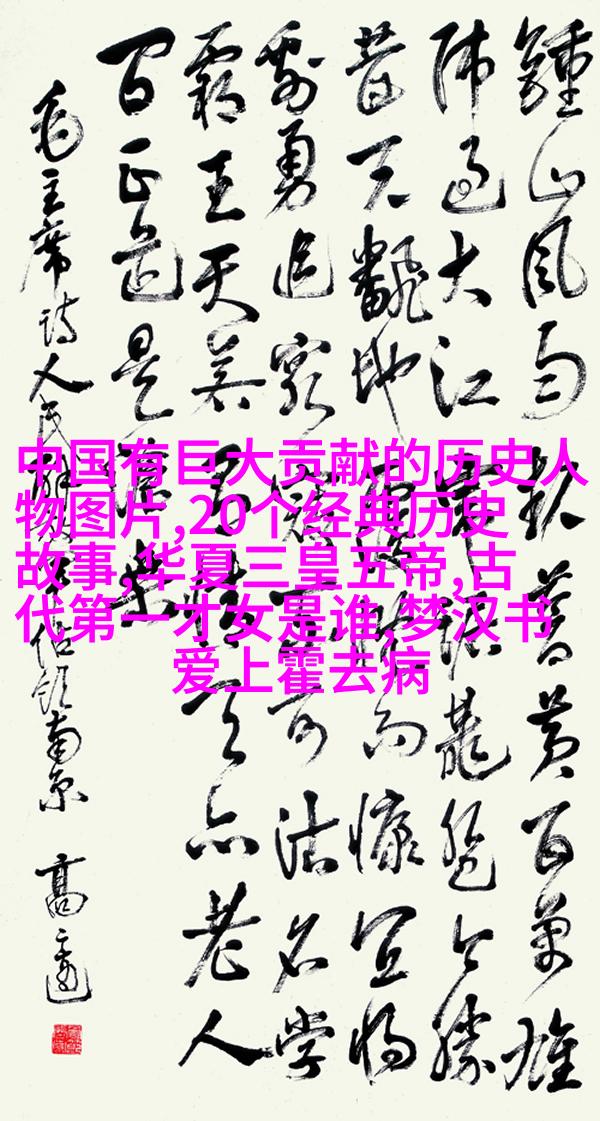 鍾山风雨起蒼黄百万雄
师过大江虎踞龍盘今勝
昔天翻地覆慨而慷宜将
剩勇追窮寇不可沽名学
霸王天若有情天亦老人
间正道是滄桑
毛主席诗人民解放军占领南京
中国有巨大贡献的历史人
物图片,20个经典历史
故事,华夏三皇五帝,古
代第一才女是谁,梦汉书
爱上霍去病